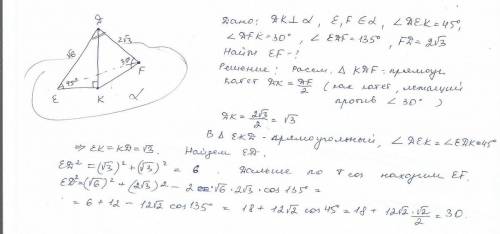 Дано: DK ⊥ α, E, F ∈ α, ∠DEK = 45°,
∠DFK = 30°, ∠EDF = 135°, FD = 2√3
Найти EF - ?
Решение: Рассм. Δ KDF - прямоуг.
Катет DK = DF/2 (как катет, лежащий
против ∠30°)
DK = 2√3/2 = √3
В Δ EKD - прямоугольный, ∠DEK = ∠EDK = 45°
⇒ EK = KD = √3. Найдем ED.
ED² = (√3)² + (√3)² = 6. Дальше по т cos находим EF.
ED² = (√6)² + (2√3)² - 2 √6 · 2√3 · cos 135° =
= 6 + 12 - 12√2 cos 135° = 18 + 12√2 cos 45° = 18 + 12√2 · √2/2 = 30.
D
√6
2√3
45°
30°
E
K
F
α